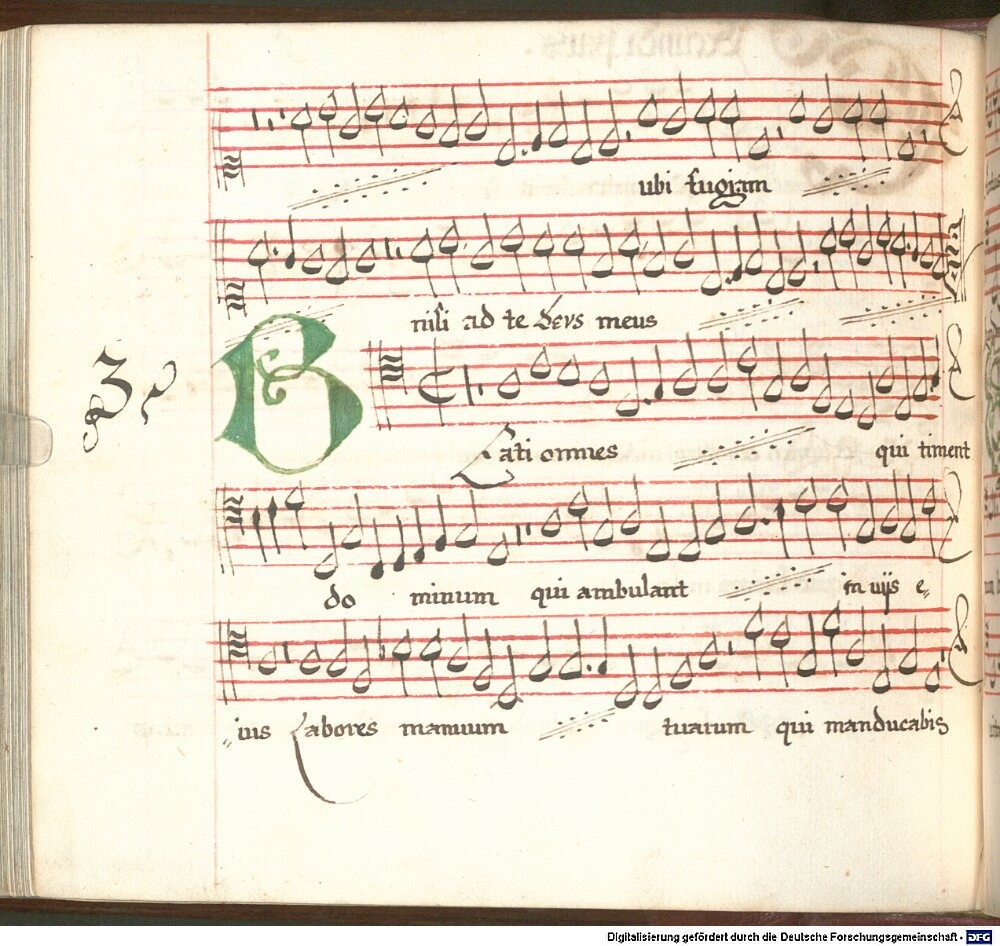 ubi fugiam
nisi ad te deus meus
3
B
Eati omnes qui timent
do minum qui ambulant in uijs e„
„ius Labores manuum tuarum qui manducabis
Digitalisierung gefördert durch die Deutsche Forschungsgemeinschaft - DFG